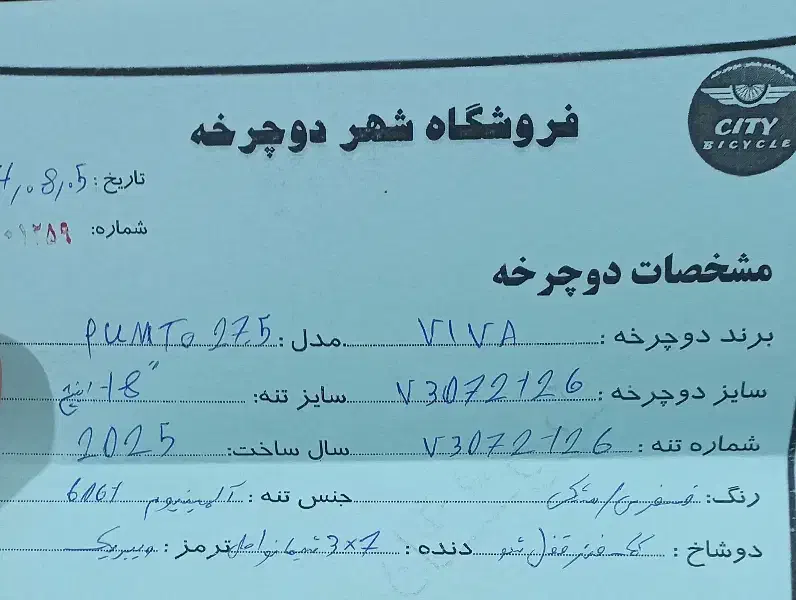 CITY
BICYCLE
فروشگاه شهر دوچرخه
تاریخ: 08,05
شماره: 01359
مشخصات دوچرخه
برند دوچرخه: VIVA مدل: PUNTO 27.5
سایز دوچرخه: V3072126 سایز تنه: 18" اینچ
شماره تنه: V3072126 سال ساخت: 2025
رنگ: مشکی جنس تنه: آلمینیوم 6061
دوشاخ: کمک فنر قفل شو دنده: 3×7 شیمانو ترمز: